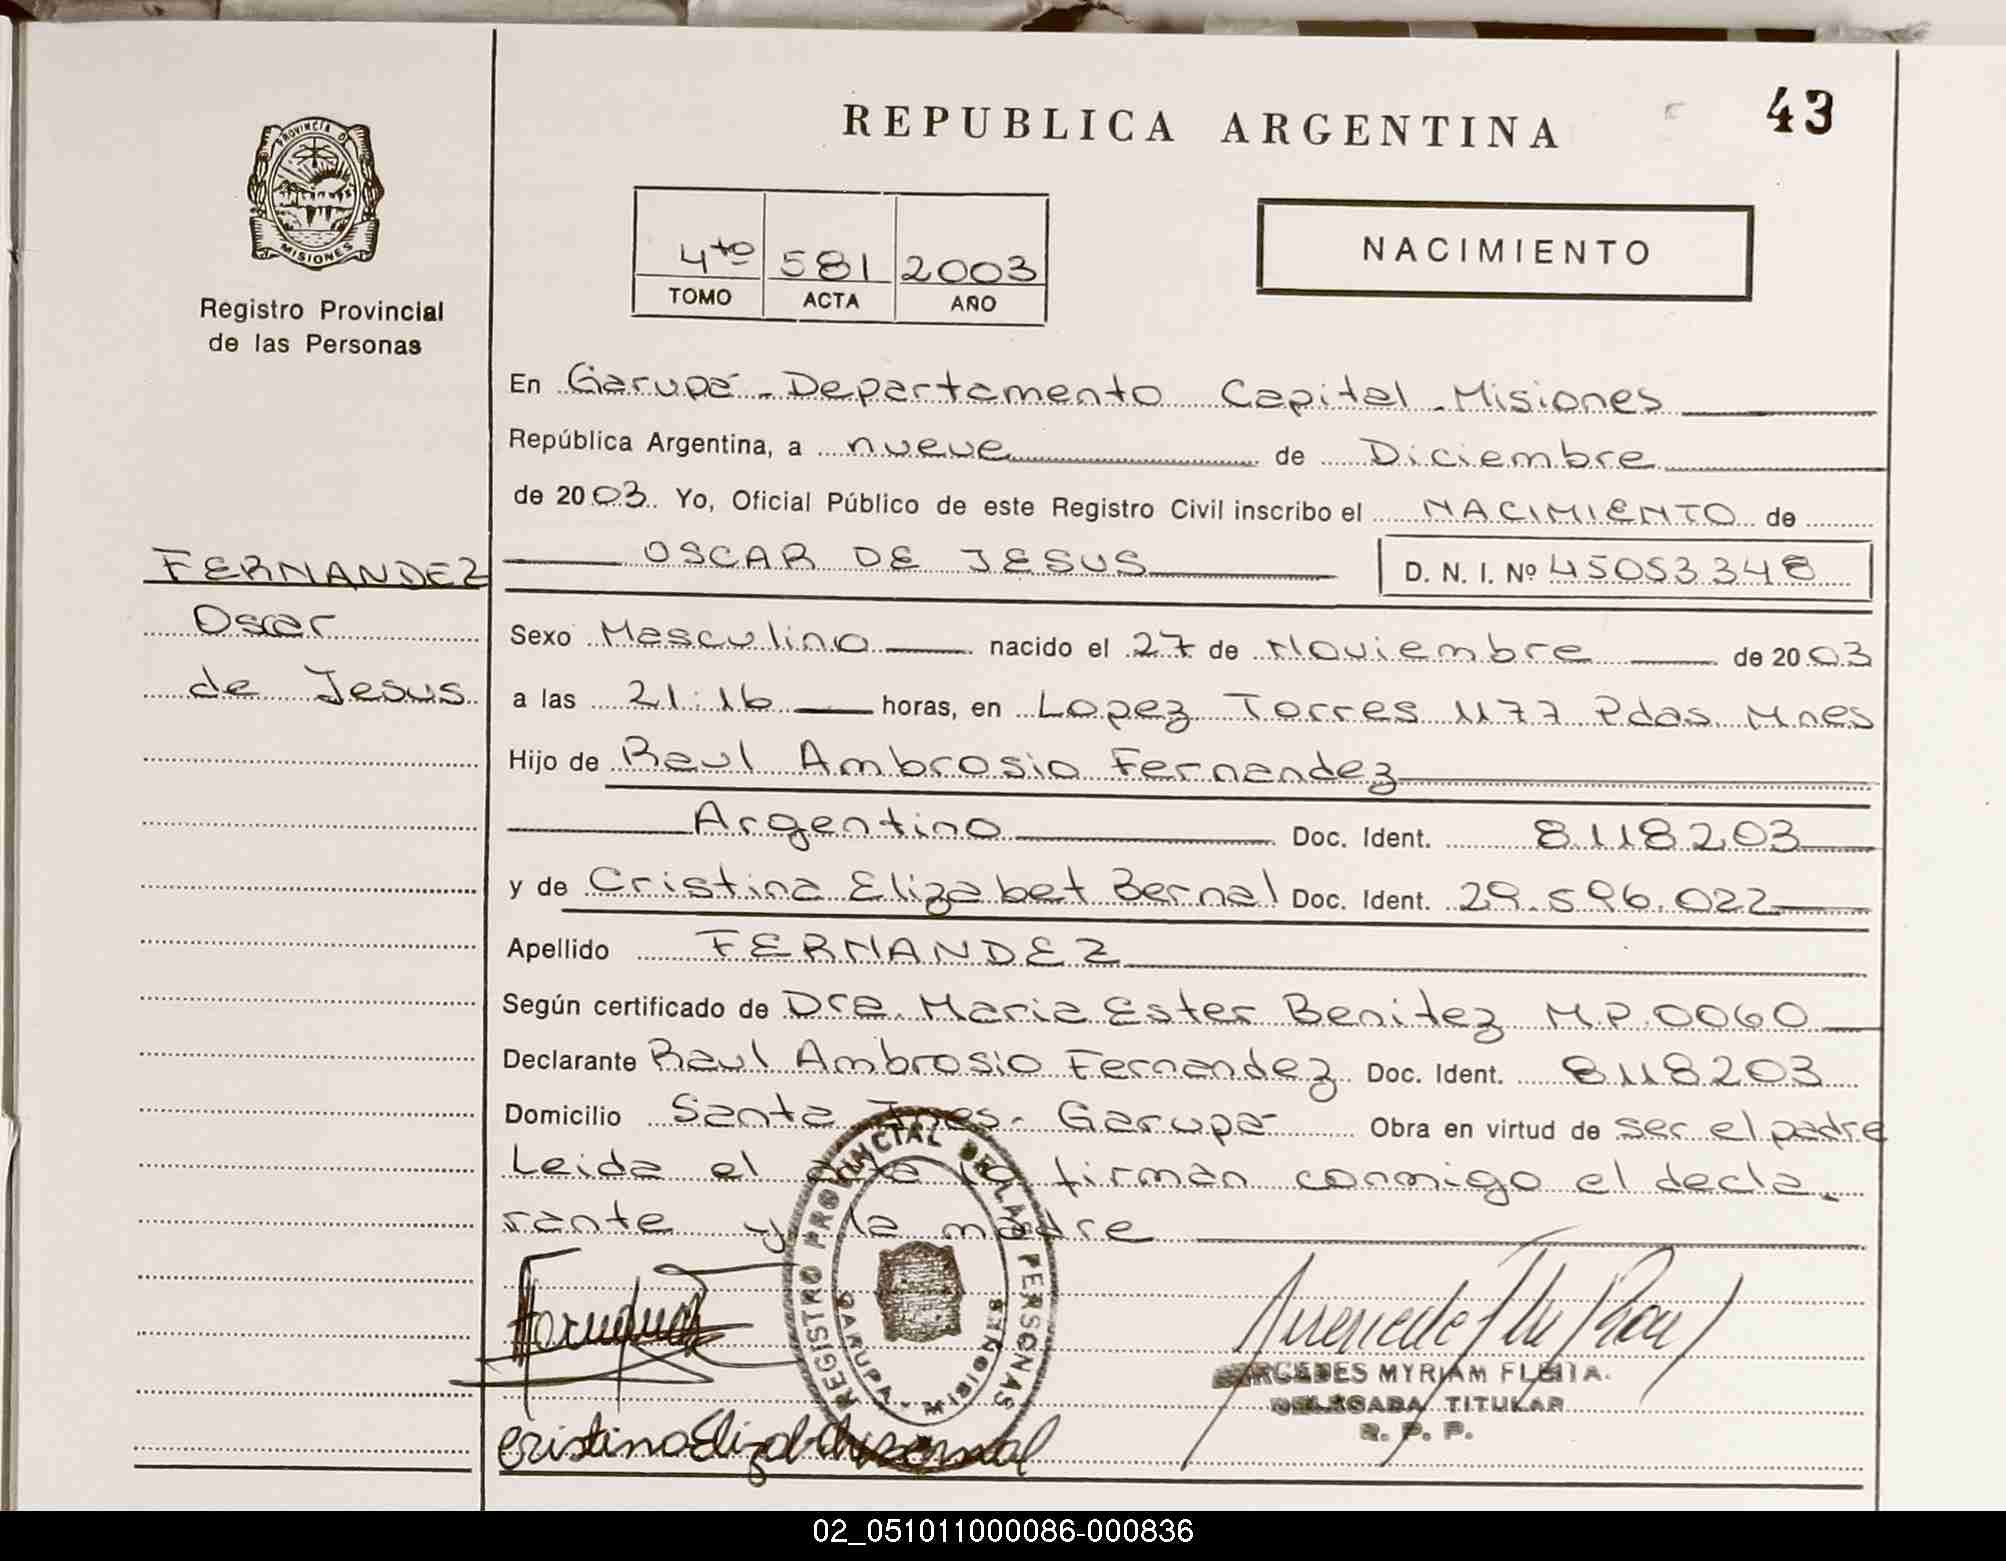 REPUBLICA ARGENTINA
43
PROVINCIA DE
MISIONES
Registro Provincial
de las Personas
4to 581 2003
TOMO ACTA AÑO
NACIMIENTO
En Garupá - Departamento Capital - Misiones
República Argentina, a nueve de Diciembre
de 2003. Yo, Oficial Público de este Registro Civil inscribo el NACIMIENTO de
OSCAR DE JESUS D. N. I. Nº 45053348
FERNANDEZ
Oscar
de Jesus
Sexo Masculino nacido el 27 de Noviembre de 2003
a las 21:16 horas, en Lopez Torres 1177 Pdas. Mnes
Hijo de Raul Ambrosio Fernandez
Argentino Doc. Ident. 8118203
y de Cristina Elizabet Bernal Doc. Ident. 29.596.022
Apellido FERNANDEZ
Según certificado de Dra. Maria Ester Benitez M.P. 0060
Declarante Raul Ambrosio Fernandez Doc. Ident. 8118203
Domicilio Santa Ines - Garupá Obra en virtud de ser el padre
Leida el acta la firman conmigo el decla-
rante y la madre
REGISTRO PROVINCIAL DE LAS PERSONAS
GARUPA - MISIONES
MERCEDES MYRIAM FLEITA
DELEGADA TITULAR
R. P. P.
02_051011000086-000836